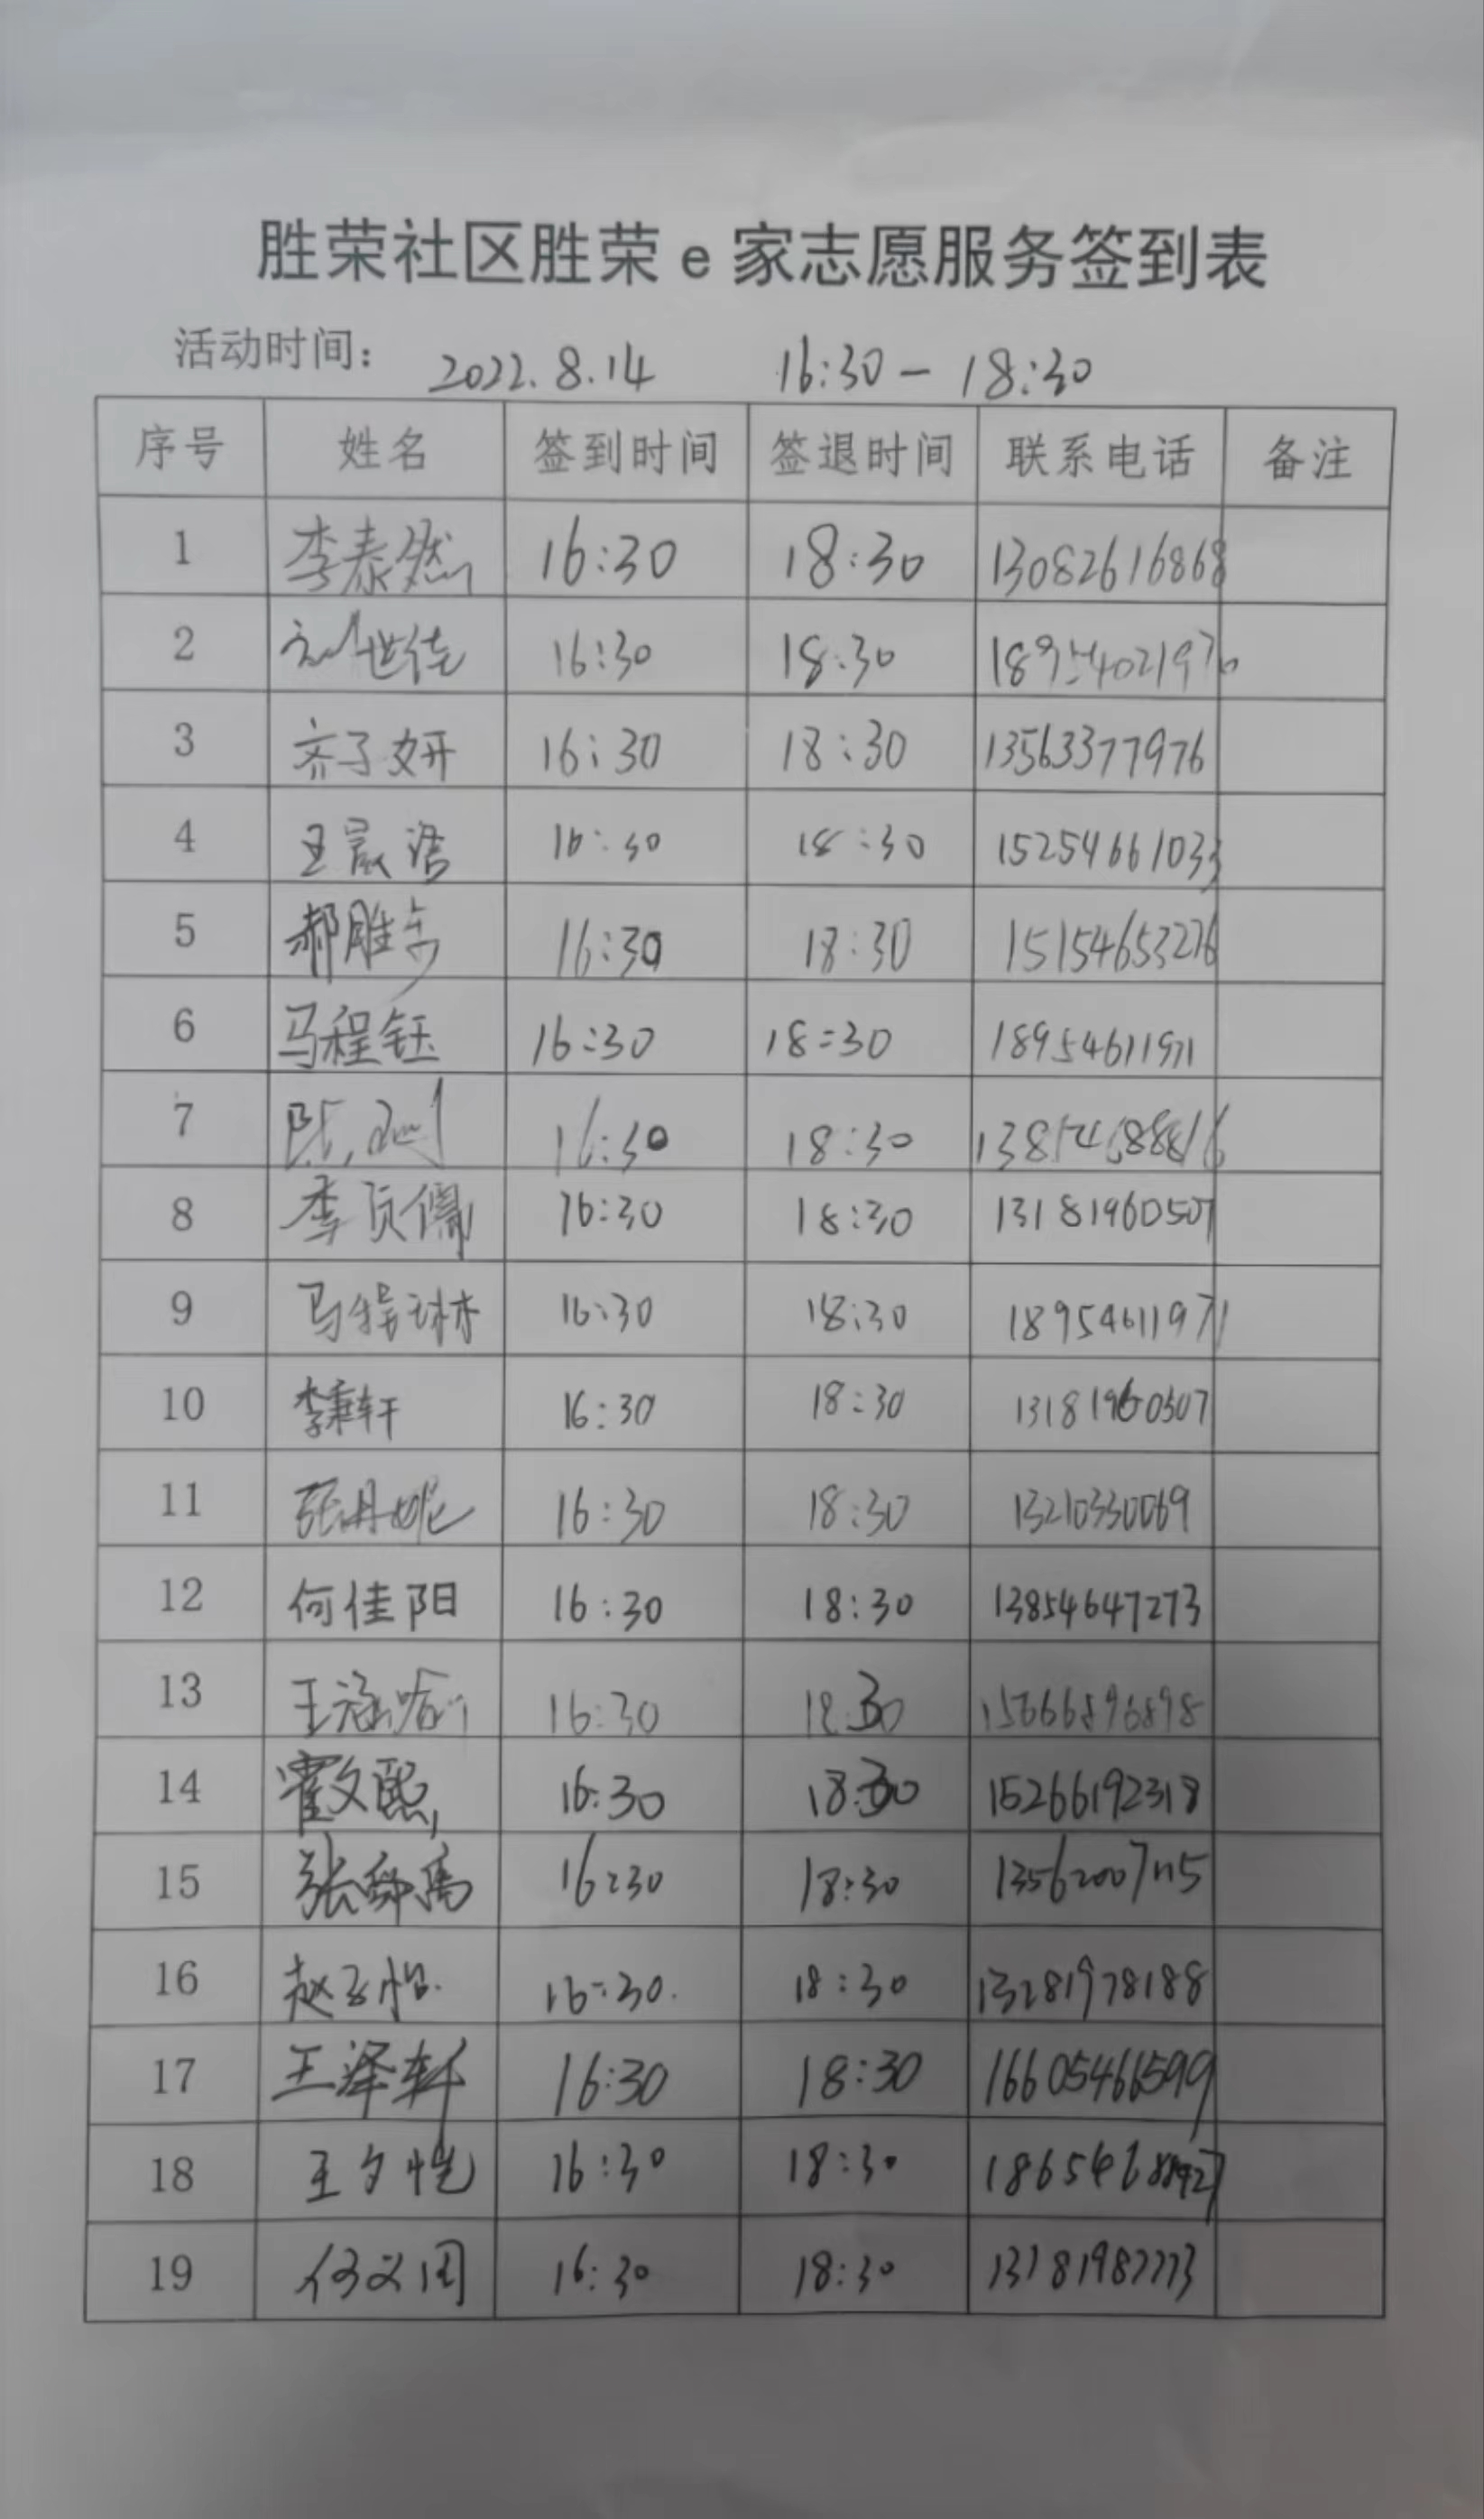 胜荣社区胜荣e家志愿服务签到表
活动时间: 2022.8.14 16:30-18:30
序号 姓名 签到时间 签退时间 联系电话 备注
1 李泰然 16:30 18:30 13082616868
2 16:30 18:30 18954021970
3 齐子妍 16:30 18:30 13563377976
4 王晨浩 16:30 18:30 15254661033
5 16:30 18:30 15154653276
6 马程钰 16:30 18:30 18954611971
7 16:30 18:30
8 李贞儒 16:30 18:30 13181960507
9 16:30 18:30 18954611971
10 李秉轩 16:30 18:30 13181960507
11 张丹妮 16:30 18:30 13210330069
12 何佳阳 16:30 18:30 13854647273
13 16:30 18:30 15666896898
14 霍文熙 16:30 18:30 15266192318
15 16:30 18:30
16 16:30 18:30 13281978188
17 王泽轩 16:30 18:30 16605466599
18 16:30 18:30
19 16:30 18:30